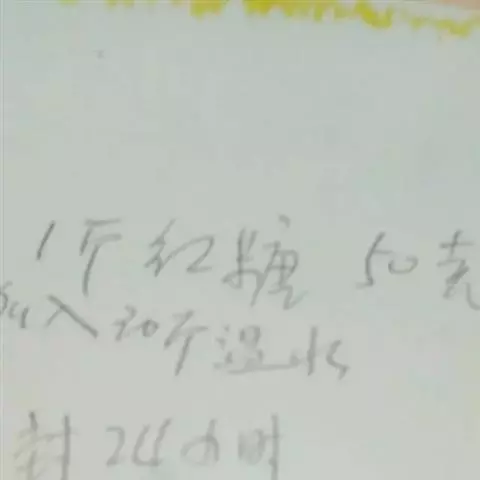 1斤红糖 50克
加入30斤温水
封24小时